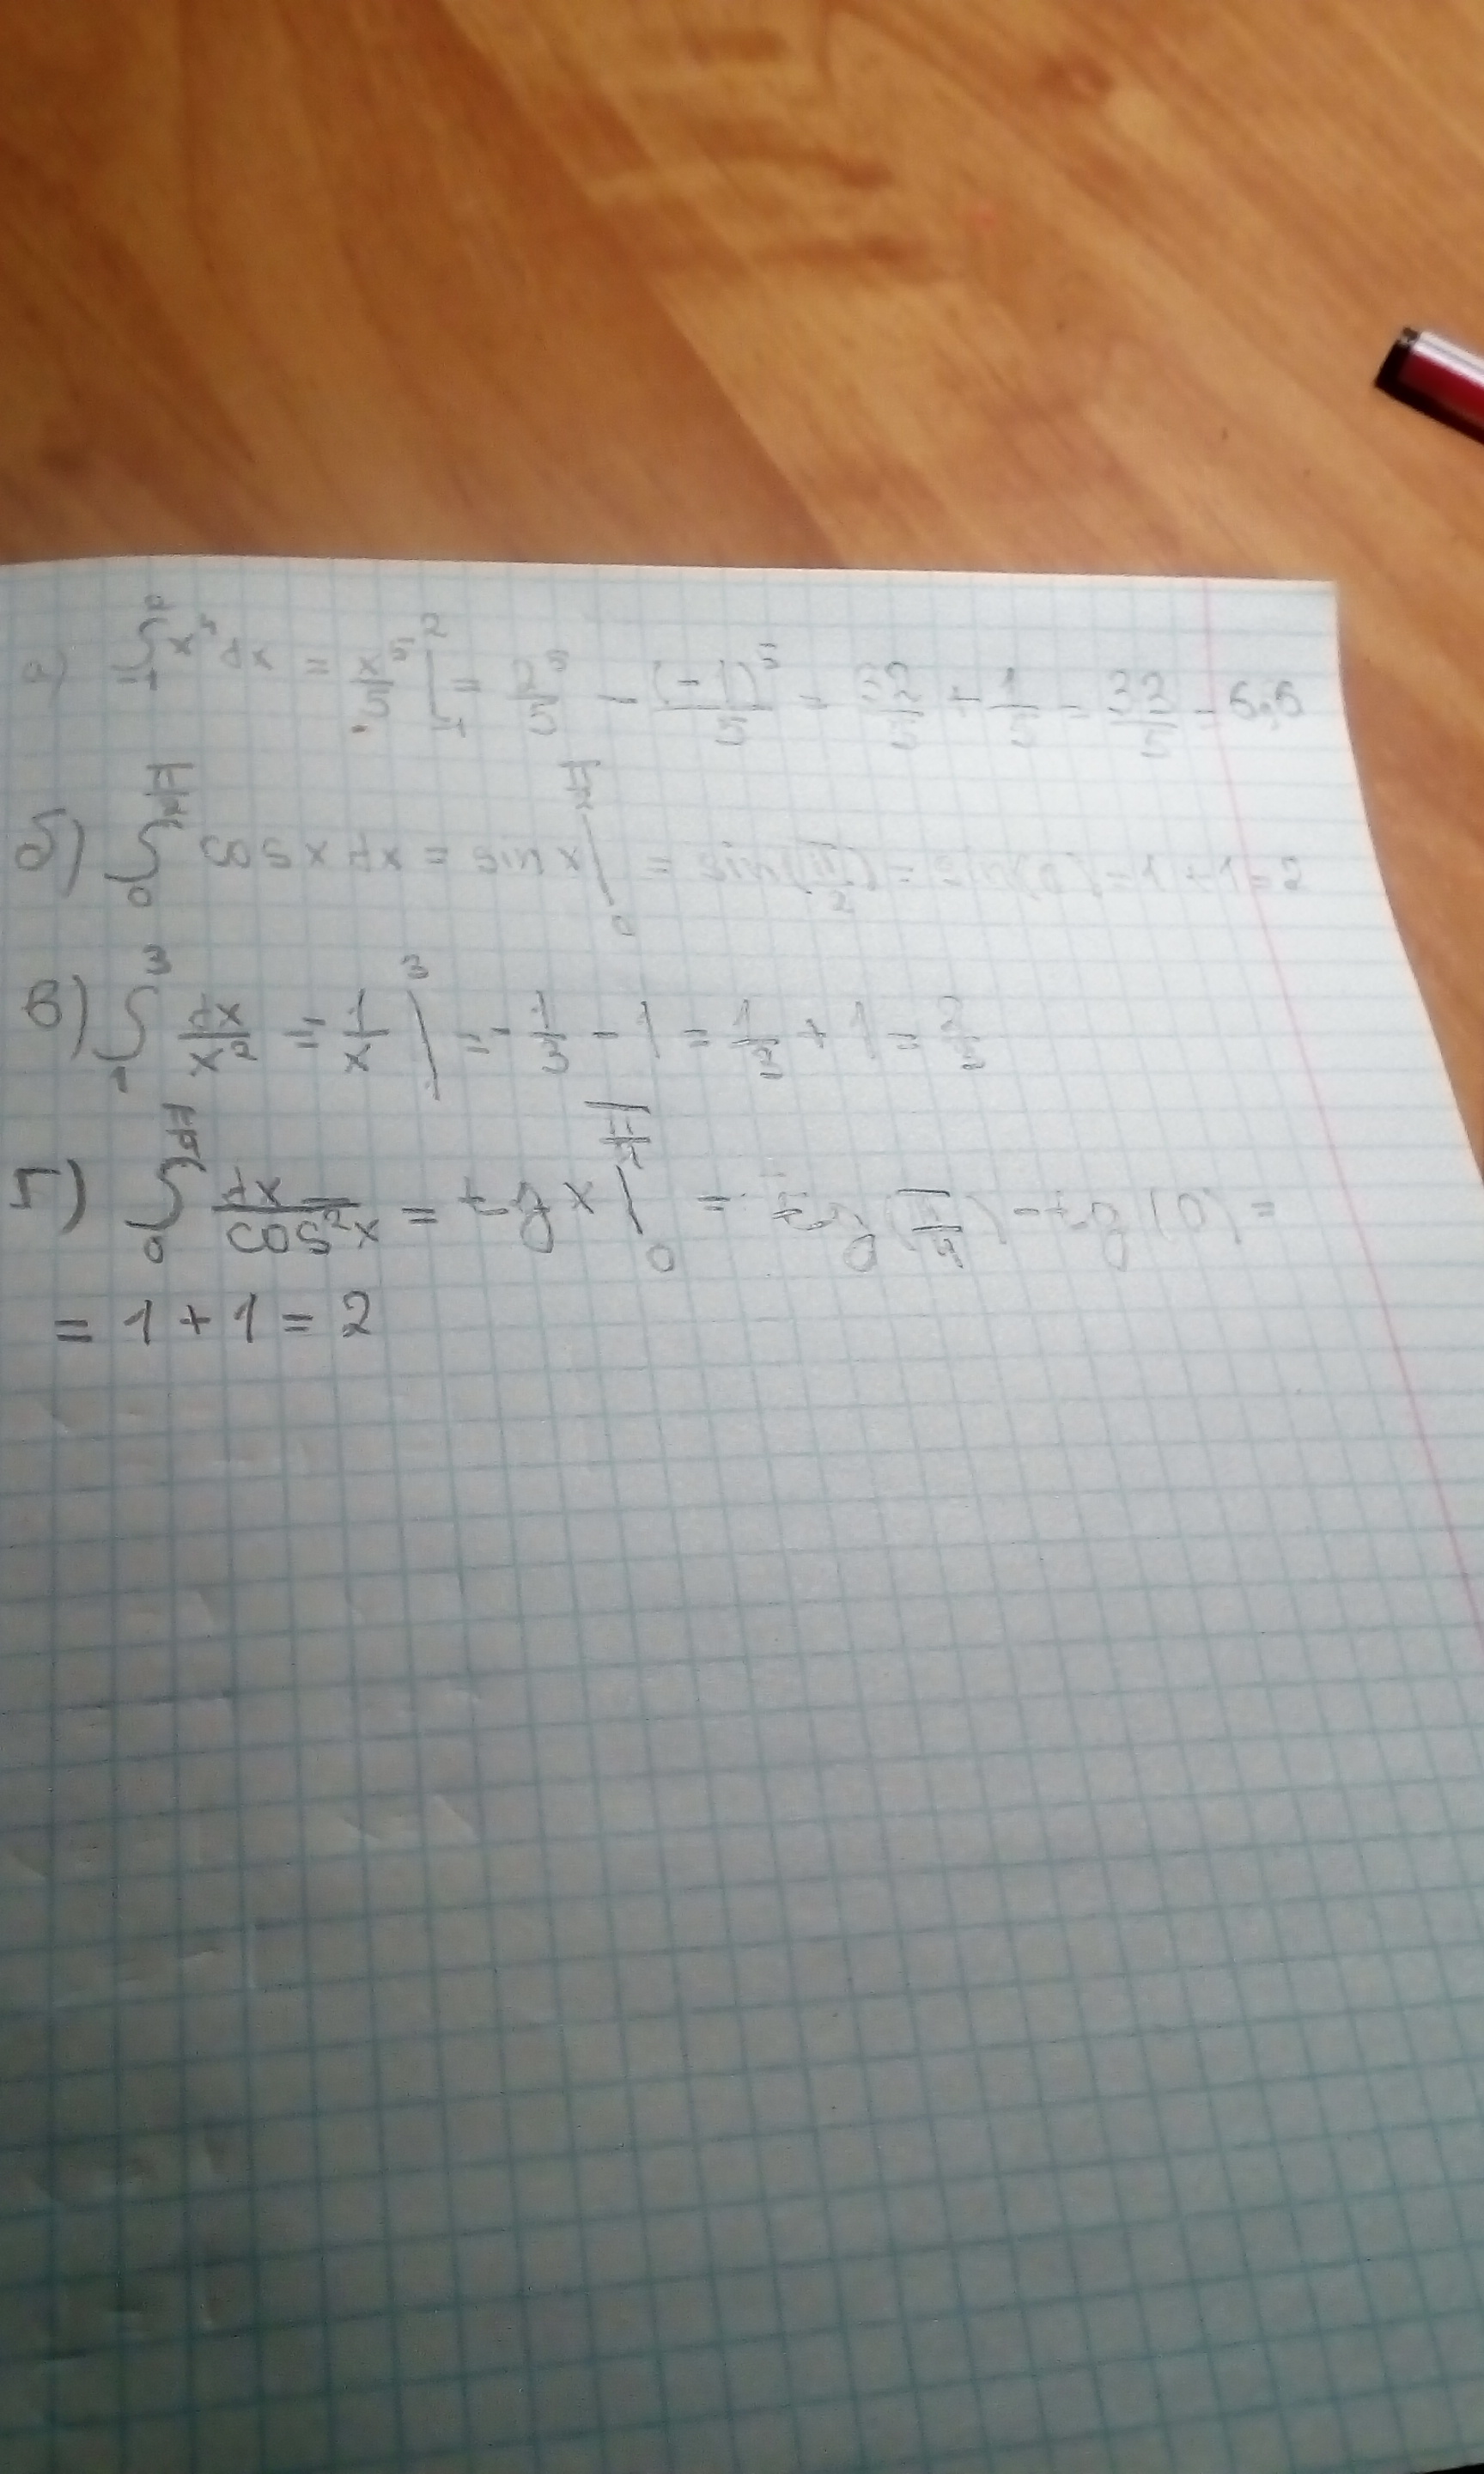 а) ∫₋₁² x⁴ dx = x⁵/5 |₋₁² = 2⁵/5 - (-1)⁵/5 = 32/5 + 1/5 = 33/5 = 6,6
б) ∫₀^(π/2) cos x dx = sin x |₀^(π/2) = sin(π/2) - sin(0) = 1 + 1 = 2
в) ∫₁³ dx/x² = -1/x |³ = -1/3 - 1 = 1/3 + 1 = 2/3
г) ∫₀ dx/cos²x = tg x |₀ = tg(π/4) - tg(0) =
= 1 + 1 = 2